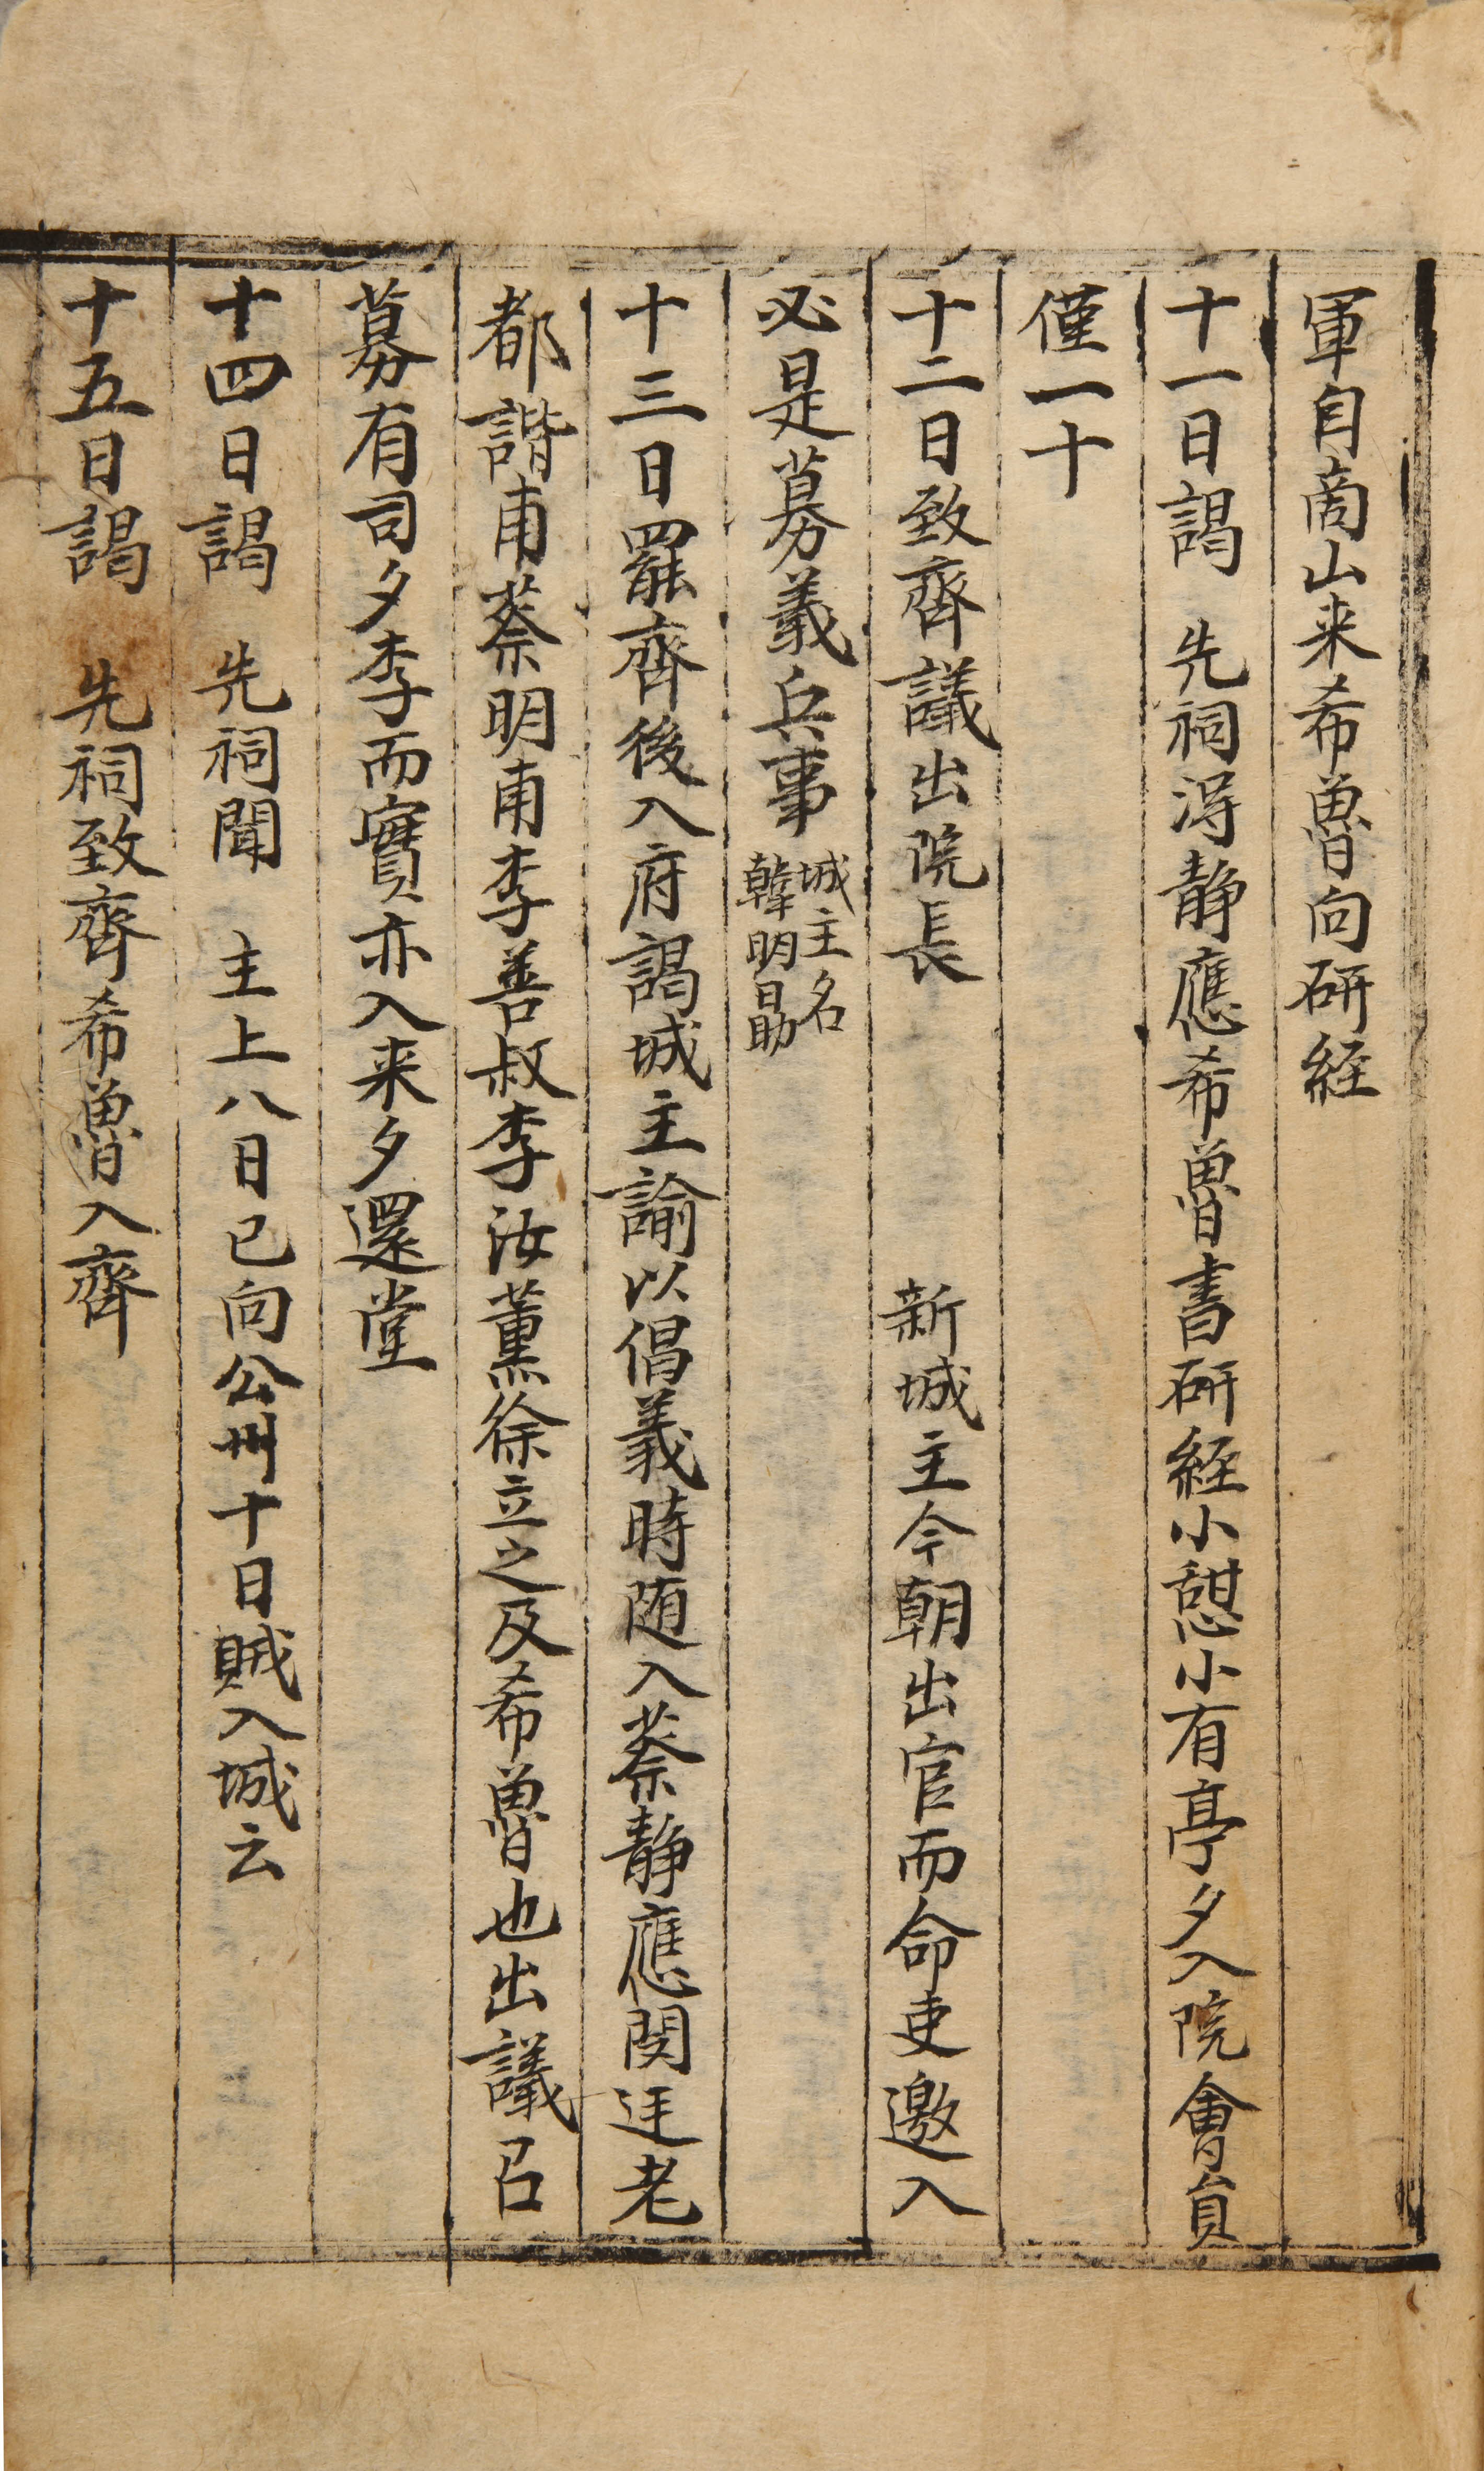 軍自商山来希魯向硏経
十一日謁　先祠淂静應希魯書硏経小憇小有亭夕入院會員
僅一十
十二日致齊議出院長　新城主今朝出官而命吏邀入
必是募義兵事城主名韓明勗
十三日罷齊後入府謁城主諭以倡義時随入蔡静應閔廷老
都諧甫蔡明甫李善叔李汝薰徐立之及希魯也出議召
募有司夕李而實亦入来夕還堂
十四日謁　先祠聞　主上八日已向公州十日賊入城云
十五日謁　先祠致齊希魯入齊